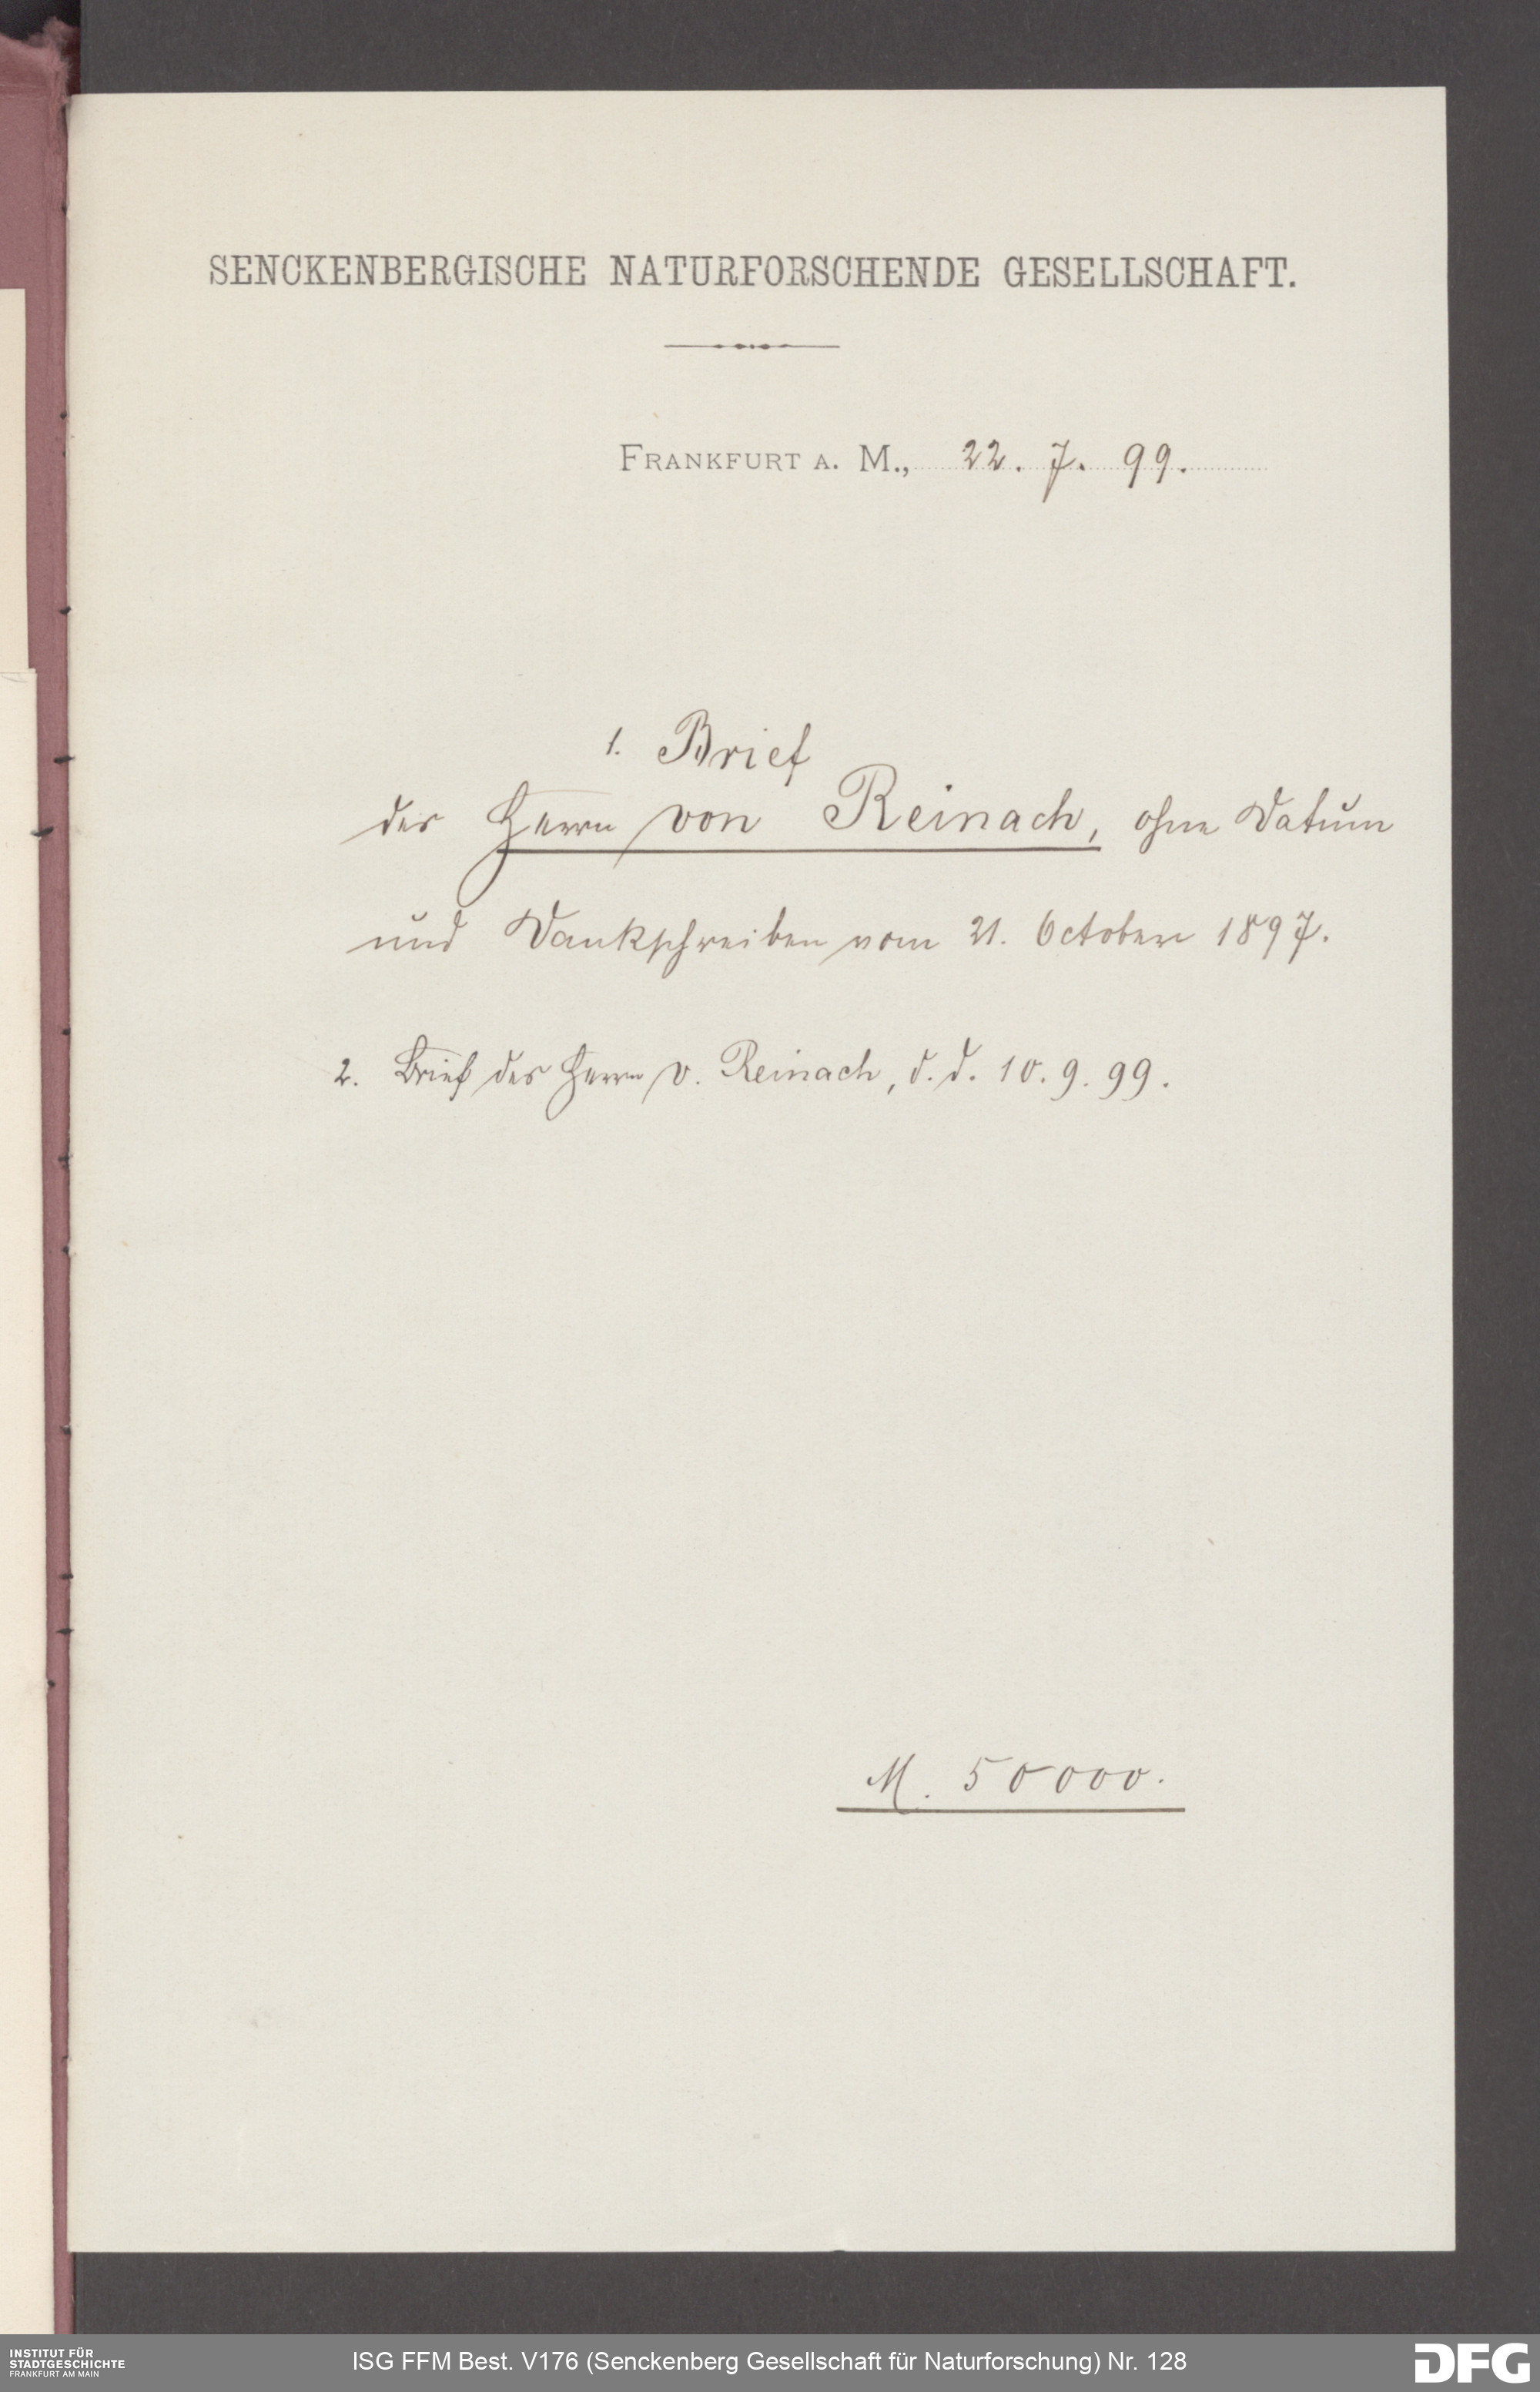 SENCKENBERGISCHE NATURFORSCHENDE GESELLSCHAFT.
FRANKFURT A. M., 22. 7. 99.
1. Brief
des Herrn von Reinach, ohne Datum
und Dankschreiben vom 21. October 1897.
2. Brief des Herrn v. Reinach, d. d. 10. 9. 99.
M. 50000.
INSTITUT FÜR
STADTGESCHICHTE
FRANKFURT AM MAIN
ISG FFM Best. V176 (Senckenberg Gesellschaft für Naturforschung) Nr. 128
DFG